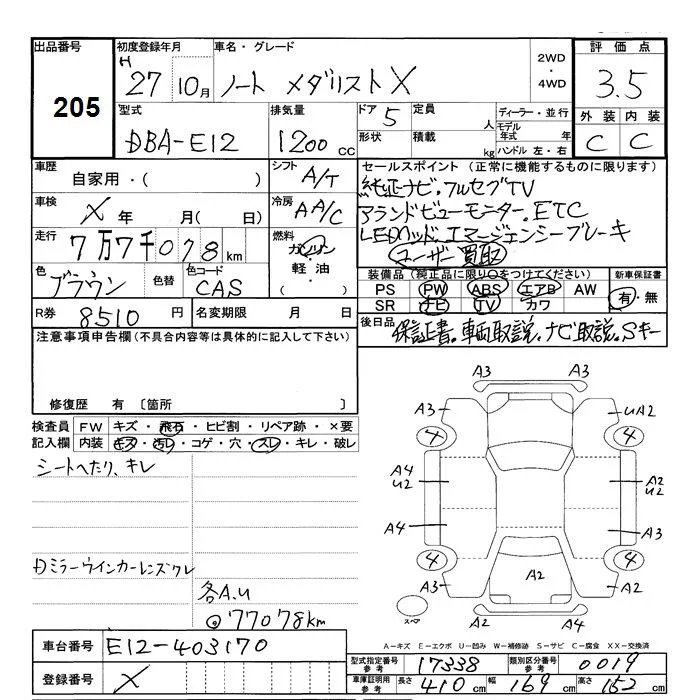 出品番号 205
初度登録年月 H 27 10月
車名・グレード ノート メダリストX
2WD・4WD
評価点 3.5
外装 内装
C C
型式 DBA-E12
排気量 1200 cc
ドア 5
定員 人
形状
積載 kg
ディーラー・並行
モデル年式 年
ハンドル 左・右
車歴 自家用・( )
シフト A/T
車検 X 年 月( 日)
冷房 AA/C
走行 7万7千078km
燃料 ガソリン・軽油・( )
色 ブラウン 色替
色コード CAS
R券 8510円
名変期限 月 日
セールスポイント(正常に機能するものに限ります)
純正ナビ・フルセグTV
アランドビューモニター・ETC
LEDヘッド・エマージェンシーブレーキ
ユーザー買取
装備品(純正品に限り○をつけてください)
PS PW ABS エアB AW
SR ナビ TV カワ
新車保証書
有・無
後日品 保証書・車両取説・ナビ取説・Sキー
注意事項申告欄(不具合内容等は具体的に記入して下さい)
修復歴 有〔箇所 〕
検査員記入欄
FW キズ・飛石・ヒビ割・リペア跡・×要
内装 キズ・汚レ・コゲ・穴・スレ・キレ・破レ
シートへたり、キレ
Dミラーウインカーレンズワレ
各A.U
77078km
A3 A3
A3 UA2
4 4
A4 U2
A2 U2
A4
A3
4 4
A3
A2
A2
A3 A4
スペア
A-キズ E-エクボ U-凹み W-補修跡 S-サビ C-腐食 XX-交換済
車台番号 E12-403170
登録番号 X
型式指定番号参考 17338
類別区分番号参考 0019
車庫証明用参考 長さ 410cm 幅 169cm 高さ 152cm